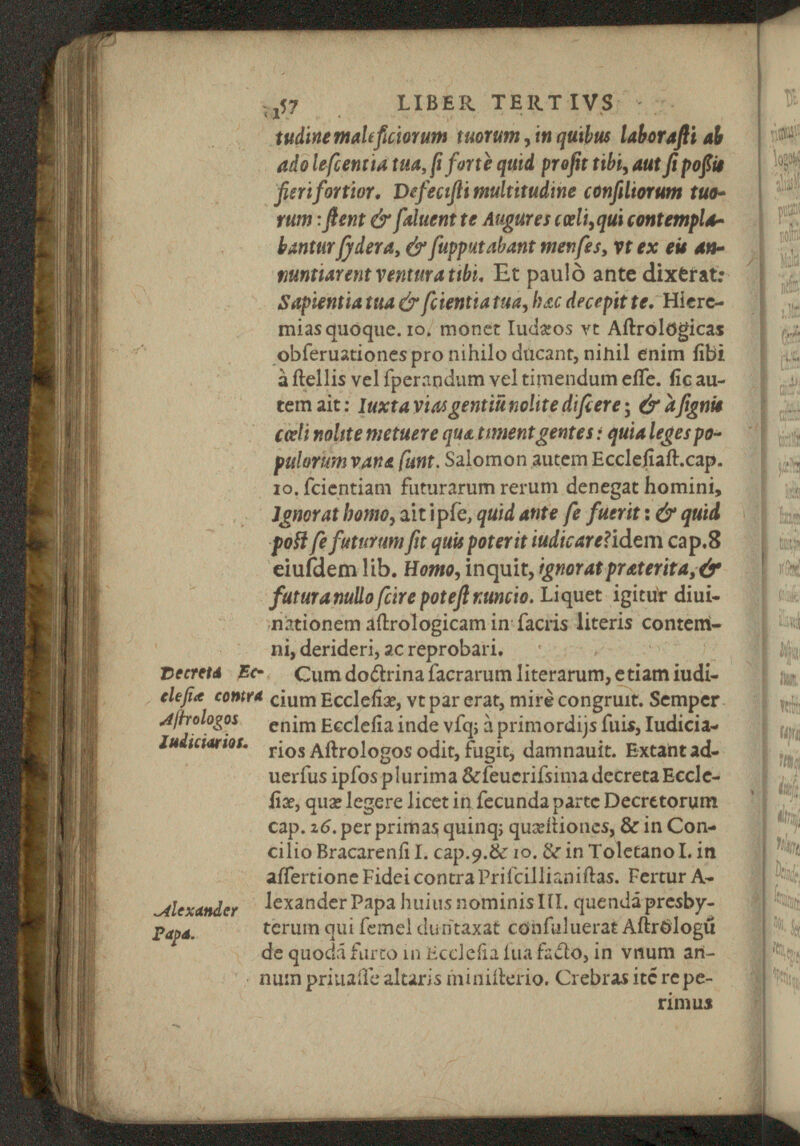 157 LIBER TERTIVS
tudine maleficiorum tuorum, in quibus laborasti ab
adolescentia tua, si fortè quid prosit tibi, aut si possis
fieri fortior. Defecisti multitudine consiliorum tuo-
rum: stent & saluent te Augures cœli, qui contempla-
bantur sydera, & supputabant menses, vt ex eis an-
nuntiarent ventura tibi. Et paulò ante dixerat:
Sapientia tua & scientia tua, hæc decepit te. Hiere-
mias quoque. 10. monet Iudæos vt Astrologicas
obseruationes pro nihilo ducant, nihil enim sibi
à stellis vel sperandum vel timendum esse. sic au-
tem ait: Iuxta vias gentiū nolite discere; & à signis
cœli nolite metuere quæ timent gentes: quia leges po-
pulorum vanæ sunt. Salomon autem Ecclesiast. cap.
10. scientiam futurarum rerum denegat homini,
Ignorat homo, ait ipse, quid ante se fuerit: & quid
post se futurum sit quis poterit iudicare? idem cap. 8
eiusdem lib. Homo, inquit, ignorat præterita, &
futura nullo scire potest nuncio. Liquet igitur diui-
nationem astrologicam in sacris literis contem-
ni, derideri, ac reprobari.
Decreta Ec-
clesiæ contra
Astrologos
Iudiciarios.
Cum doctrina sacrarum literarum, etiam iudi-
cium Ecclesiæ, vt par erat, mirè congruit. Semper
enim Ecclesia inde vsq; à primordijs suis, Iudicia-
rios Astrologos odit, fugit, damnauit. Extant ad-
uersus ipsos plurima & seuerissima decreta Eccle-
siæ, quæ legere licet in secunda parte Decretorum
cap. 26. per primas quinq; quæstiones, & in Con-
cilio Bracarensi I. cap. 9. & 10. & in Toletano I. in
assertione Fidei contra Priscillianistas. Fertur A-
Alexander
Papa.
lexander Papa huius nominis III. quendā presby-
terum qui semel duntaxat consuluerat Astrologū
de quodā furto in Ecclesia sua facto, in vnum an-
num priuasse altaris ministerio. Crebras itē repe-
rimus